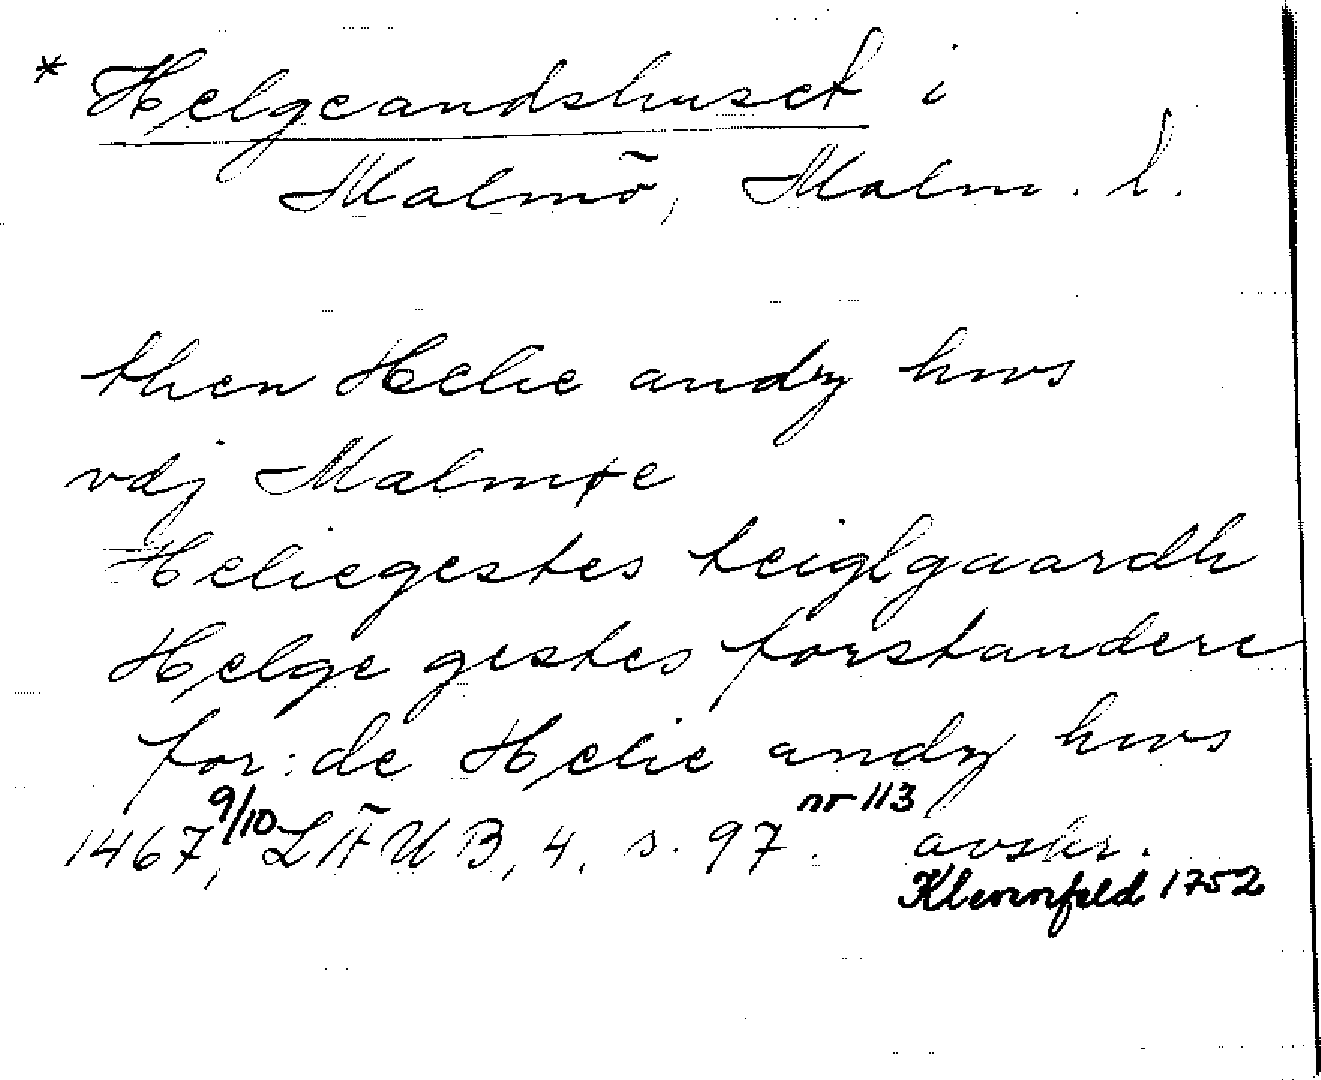 * Helgeandshuset i
Malmö, Malm. l.
then Helie andz hws
vdj Malmøe
Heliegestes teiglgaardh
Helge gestes forstandere
for:de Helie andz hws
1467, 9/10 LÄUB, 4. s. 97. nr 113 avskr.
Klevenfeld 1752